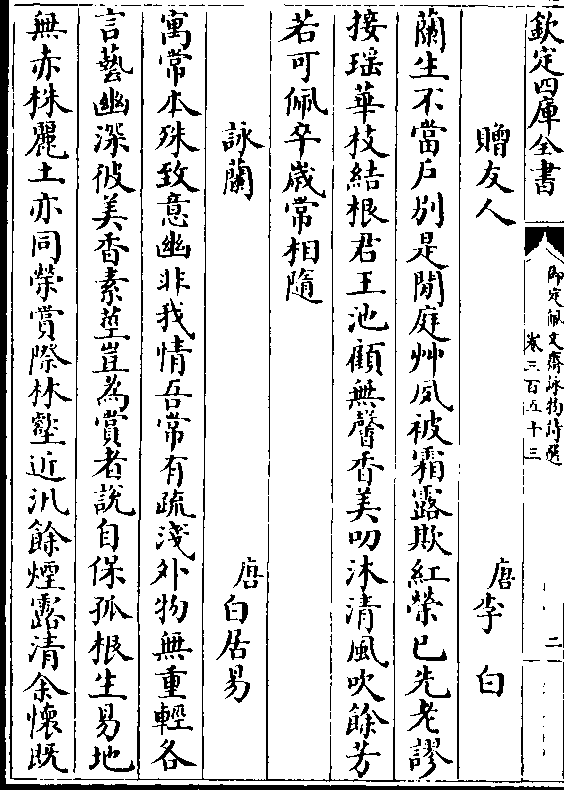 欽定四庫全書
御定佩文齋詠物詩選
卷三百五十三
二
贈友人
唐李白
蘭生不當户别是閒庭艸夙被霜露欺紅榮已先老謬
接瑶華枝結根君王池顧無馨香美叨沐清風吹餘芳
若可佩卒歲常相隨
詠蘭
唐白居易
寓常本殊致意幽非我情吾常有疏淺外物無重輕各
言藝幽深彼美香素莖豈為賞者說自保孤根生易地
無赤株麗土亦同榮賞際林壑近汎餘煙露清余懷既